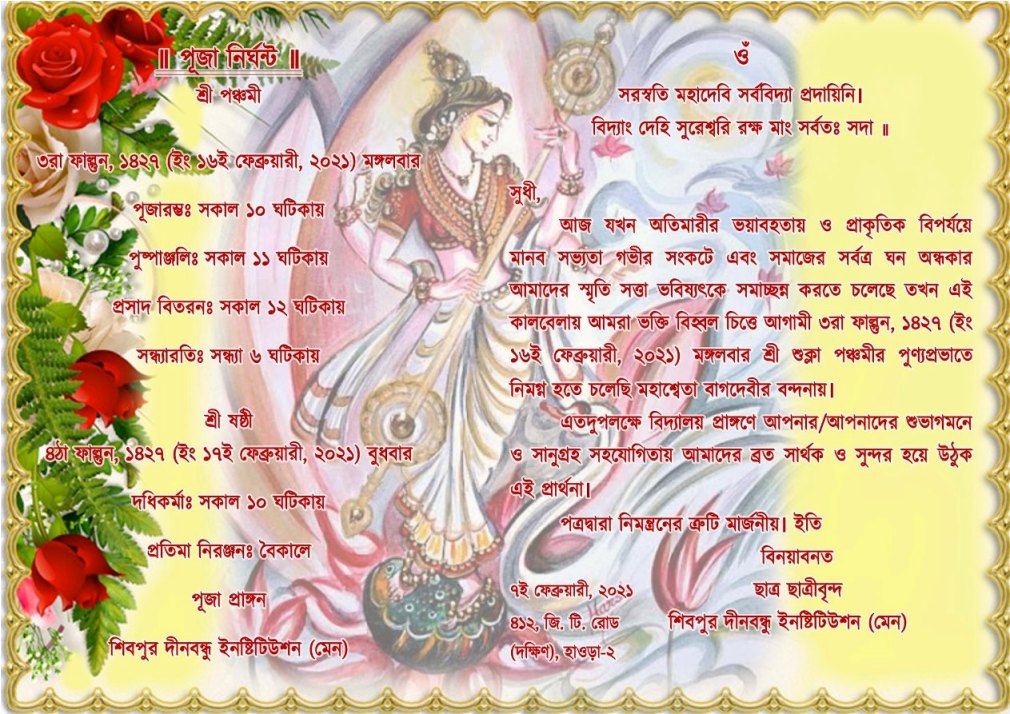 ॥ পূজা নির্ঘন্ট ॥
শ্রী পঞ্চমী
৩রা ফাল্গুন, ১৪২৭ (ইং ১৬ই ফেব্রুয়ারী, ২০২১) মঙ্গলবার
পূজারম্ভঃ সকাল ১০ ঘটিকায়
পুষ্পাঞ্জলিঃ সকাল ১১ ঘটিকায়
প্রসাদ বিতরনঃ সকাল ১২ ঘটিকায়
সন্ধ্যারতিঃ সন্ধ্যা ৬ ঘটিকায়
শ্রী ষষ্ঠী
৪ঠা ফাল্গুন, ১৪২৭ (ইং ১৭ই ফেব্রুয়ারী, ২০২১) বুধবার
দধিকর্মাঃ সকাল ১০ ঘটিকায়
প্রতিমা নিরঞ্জনঃ বৈকালে
পূজা প্রাঙ্গন
শিবপুর দীনবন্ধু ইনষ্টিটিউশন (মেন)
ওঁ
সরস্বতি মহাদেবি সর্ববিদ্যা প্রদায়িনি।
বিদ্যাং দেহি সুরেশ্বরি রক্ষ মাং সর্বতঃ সদা ॥
সুধী,
আজ যখন অতিমারীর ভয়াবহতায় ও প্রাকৃতিক বিপর্যয়ে
মানব সভ্যতা গভীর সংকটে এবং সমাজের সর্বত্র ঘন অন্ধকার
আমাদের স্মৃতি সত্তা ভবিষ্যৎকে সমাচ্ছন্ন করতে চলেছে তখন এই
কালবেলায় আমরা ভক্তি বিহ্বল চিত্তে আগামী ৩রা ফাল্গুন, ১৪২৭ (ইং
১৬ই ফেব্রুয়ারী, ২০২১) মঙ্গলবার শ্রী শুক্লা পঞ্চমীর পুণ্যপ্রভাতে
নিমগ্ন হতে চলেছি মহাশ্বেতা বাগদেবীর বন্দনায়।
এতদুপলক্ষে বিদ্যালয় প্রাঙ্গণে আপনার/আপনাদের শুভাগমনে
ও সানুগ্রহ সহযোগিতায় আমাদের ব্রত সার্থক ও সুন্দর হয়ে উঠুক
এই প্রার্থনা।
পত্রদ্বারা নিমন্ত্রনের ত্রুটি মার্জনীয়। ইতি
বিনয়াবনত
ছাত্র ছাত্রীবৃন্দ
শিবপুর দীনবন্ধু ইনষ্টিটিউশন (মেন)
৭ই ফেব্রুয়ারী, ২০২১
৪১২, জি. টি. রোড
(দক্ষিণ), হাওড়া-২